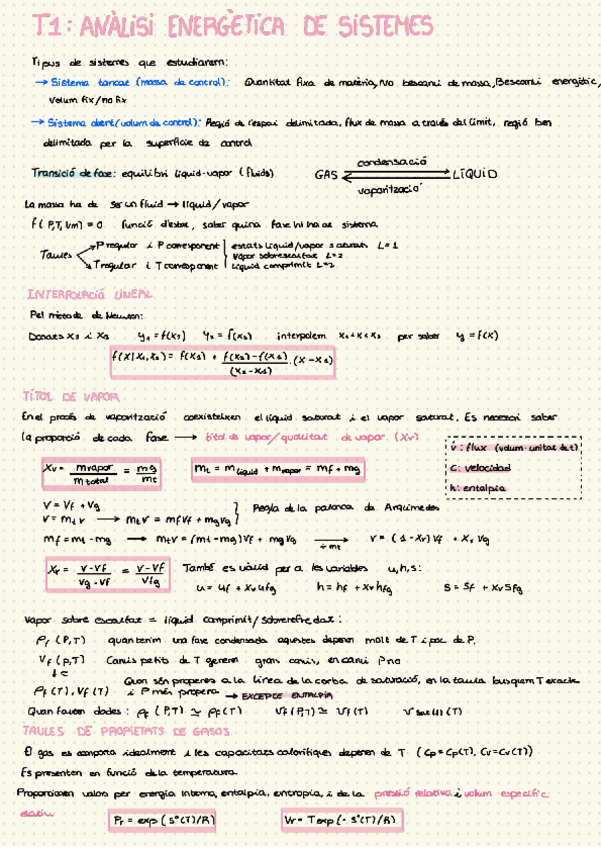 T1: ANÀLISI ENERGÈTICA DE SISTEMES
Tipus de sistemes que estudiarem:
→ Sistema tancat (massa de control): Quantitat fixa de matèria, No bescanvi de massa, Bescanvi energètic,
Volum fix/no fix
→ Sistema obert (volum de control): Regió de l'espai delimitada, flux de massa a través del límit, regió ben
delimitada per la superfície de control
Transició de fase: equilibri líquid-vapor (fluids)
condensació
GAS LÍQUID
vaporització
La massa ha de ser un fluid → líquid/vapor
f(P,T,Vm) = 0 funció d'estat, saber quina fase hi ha al sistema
Taules
P regular i P corresponent
T regular i T corresponent
estats líquid/vapor saturats L=1
Vapor sobreescalfat L=2
Líquid comprimit L=2
INTERPOLACIÓ LINEAL
Pel mètode de Newton:
Donats x1 i x2 y1 = f(x1) y2 = f(x2) interpolem x1<x<x2 per saber y = f(x)
f(x|x1,x2) = f(x1) + f(x2)-f(x1) / (x2-x1) · (x-x1)
TÍTOL DE VAPOR
En el procés de vaporització coexisteixen el líquid saturat i el vapor saturat. És necessari saber
la proporció de cada fase → títol de vapor/qualitat de vapor (Xv)
v̇: flux (volum·unitat de t)
c: velocidad
h: entalpia
Xv = mvapor / mtotal = mg / mt
mt = mlíquid + mvapor = mf + mg
V = Vf + Vg
V = mt v → mt v = mf vf + mg vg
Regla de la palanca de Arquímedes
mf = mt - mg → mt v = (mt - mg) vf + mg vg → ÷mt v = (1 - Xv) vf + Xv vg
Xv = v-vf / vg-vf = v-vf / vfg
També es vàlid per a les variables u, h, s:
u = uf + Xv ufg h = hf + Xv hfg s = sf + Xv sfg
Vapor sobre escalfat = líquid comprimit/sobrerefredat:
ρf (P,T) quan tenim una fase condensada aquestes depenen molt de T i poc de P.
Vf (P,T) Canvis petits de T generen grans canvis, en canvi P no
Quan són properes a la línea de la corba de saturació, en la taula busquem T exacte
ρf (T), Vf (T) i P més propera → EXCEPTE ENTALPIA
Quan falten dades: ρf (P,T) ≃ ρf (T) Vf (P,T) ≃ Vf (T) V sat(l) (T)
TAULES DE PROPIETATS DE GASOS
El gas es comporta idealment i les capacitats calorífiques depenen de T (Cp = Cp(T), Cv = Cv(T))
Es presenten en funció de la temperatura
Proporcionen valors per energia interna, entalpia, entropia, i de la pressió relativa i volum específic
relatiu
Pr = exp (s°(T)/R)
Vr = T exp (- s°(T)/R)